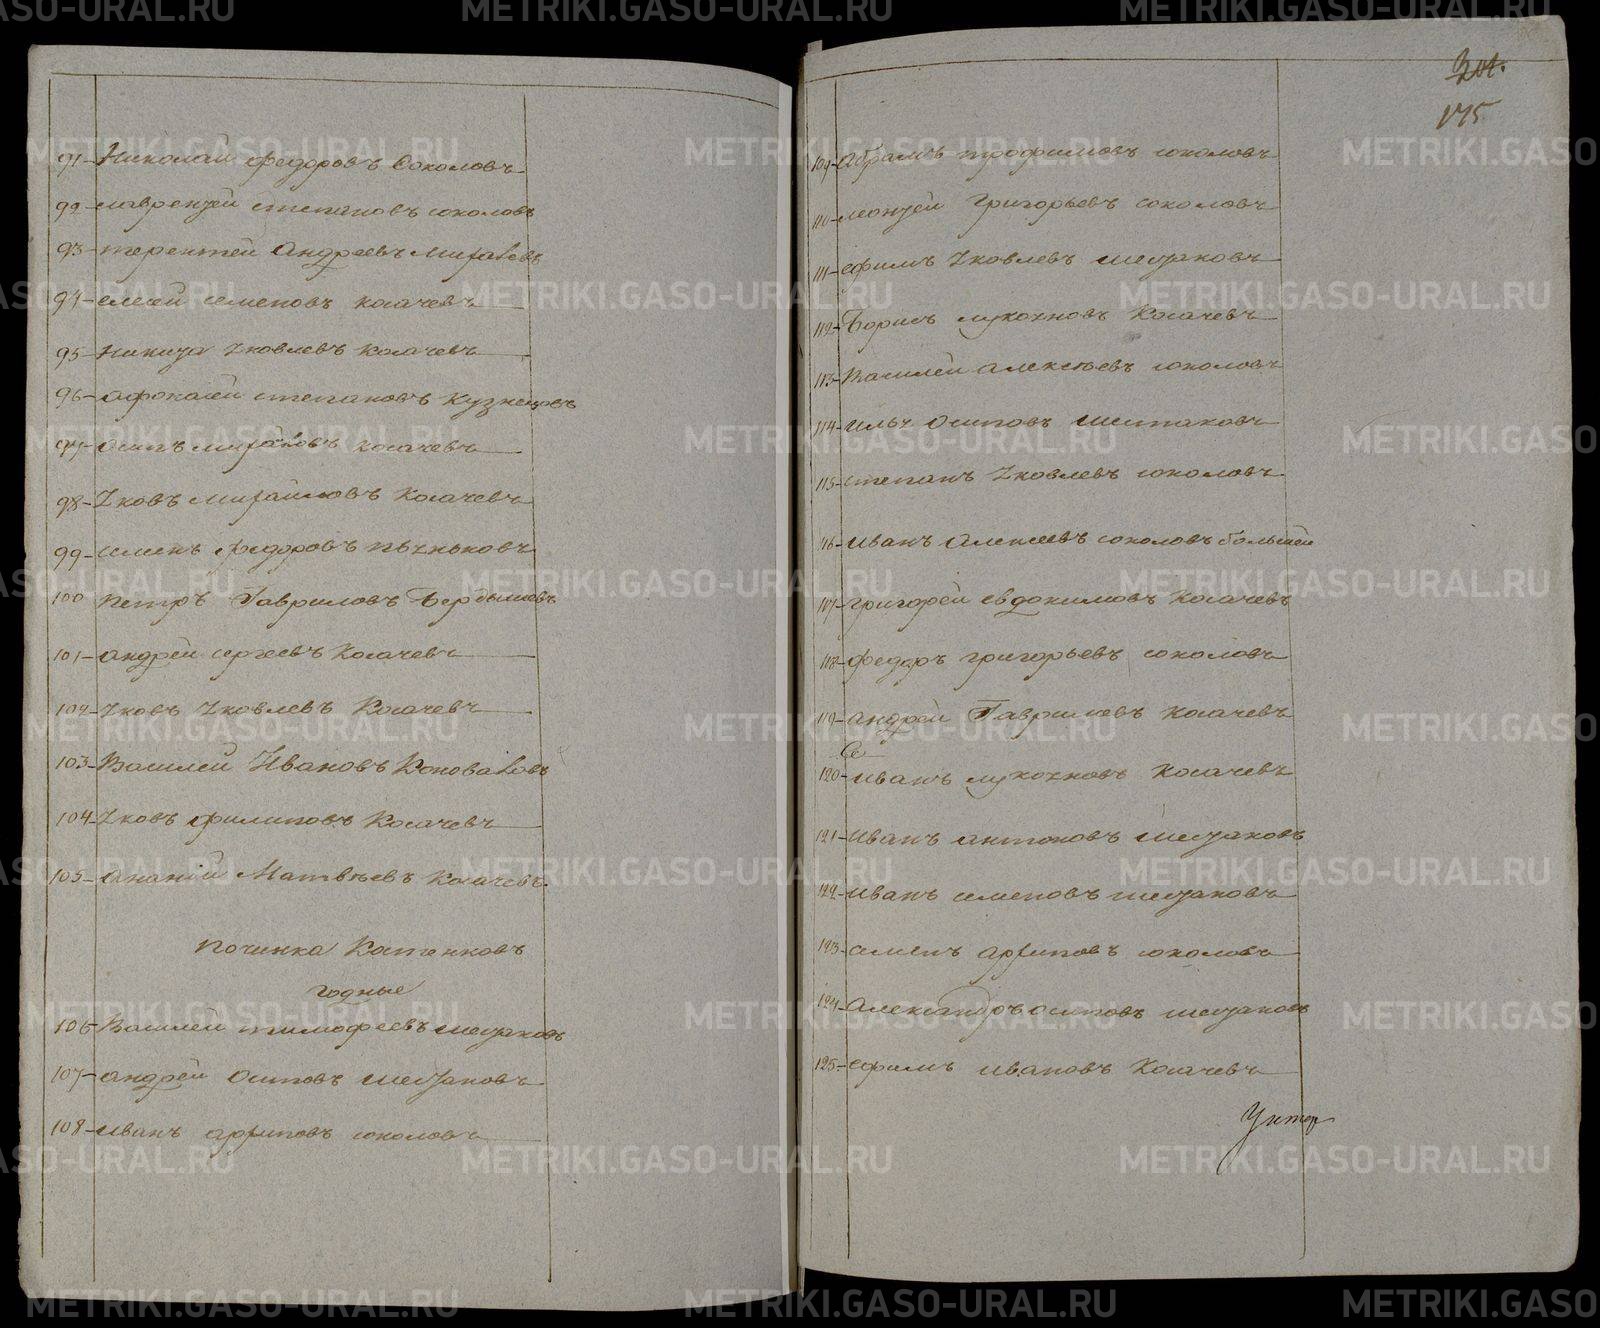 91 Николай федоровъ Соколовъ
92 лаврентей степановъ соколовъ
93 терентей Андреевъ
94 елесей семеновъ косачевъ
95 Никита Яковлевъ косачевъ
96 афонасей степановъ Кузнецовъ
97 осипъ косачевъ
98 Яковъ михаиловъ косачевъ
99 семенъ федоровъ пьянковъ
100 петръ Гавриловъ Бердышевъ
101 андрей сергеевъ косачевъ
102 Яковъ Яковлевъ Косачевъ
103 Василей Ивановъ Коноваловъ
104 Яковъ филиповъ Косачевъ
105 ананий Матвѣевъ косачевъ
починка Катенковъ
годные
106 Василей тимофеевъ шестаковъ
107 андрей осиповъ шестаковъ
108 иванъ архиповъ соколовъ
201.
175
109 абрамъ трофимовъ соколовъ
110 леонтей Григорьевъ соколовъ
111 ефимъ Яковлевъ шестаковъ
112 Борисъ лукояновъ Косачевъ
113 Василей алексѣевъ соколовъ
114 илья осиповъ шестаковъ
115 степанъ Яковлевъ соколовъ
116 иванъ Алексеевъ соколовъ большей
117 григорей евдокимовъ косачевъ
118 федоръ григорьевъ соколовъ
119 андрей Гавриловъ косачевъ
120 иванъ лукояновъ косачевъ
121 иванъ антоновъ шестаковъ
122 иванъ семеновъ шестаковъ
123 семенъ архиповъ соколовъ
124 Александръ осиповъ шестаковъ
125 ефимъ ивановъ косачевъ
Унтер
METRIKI.GASO-URAL.RU